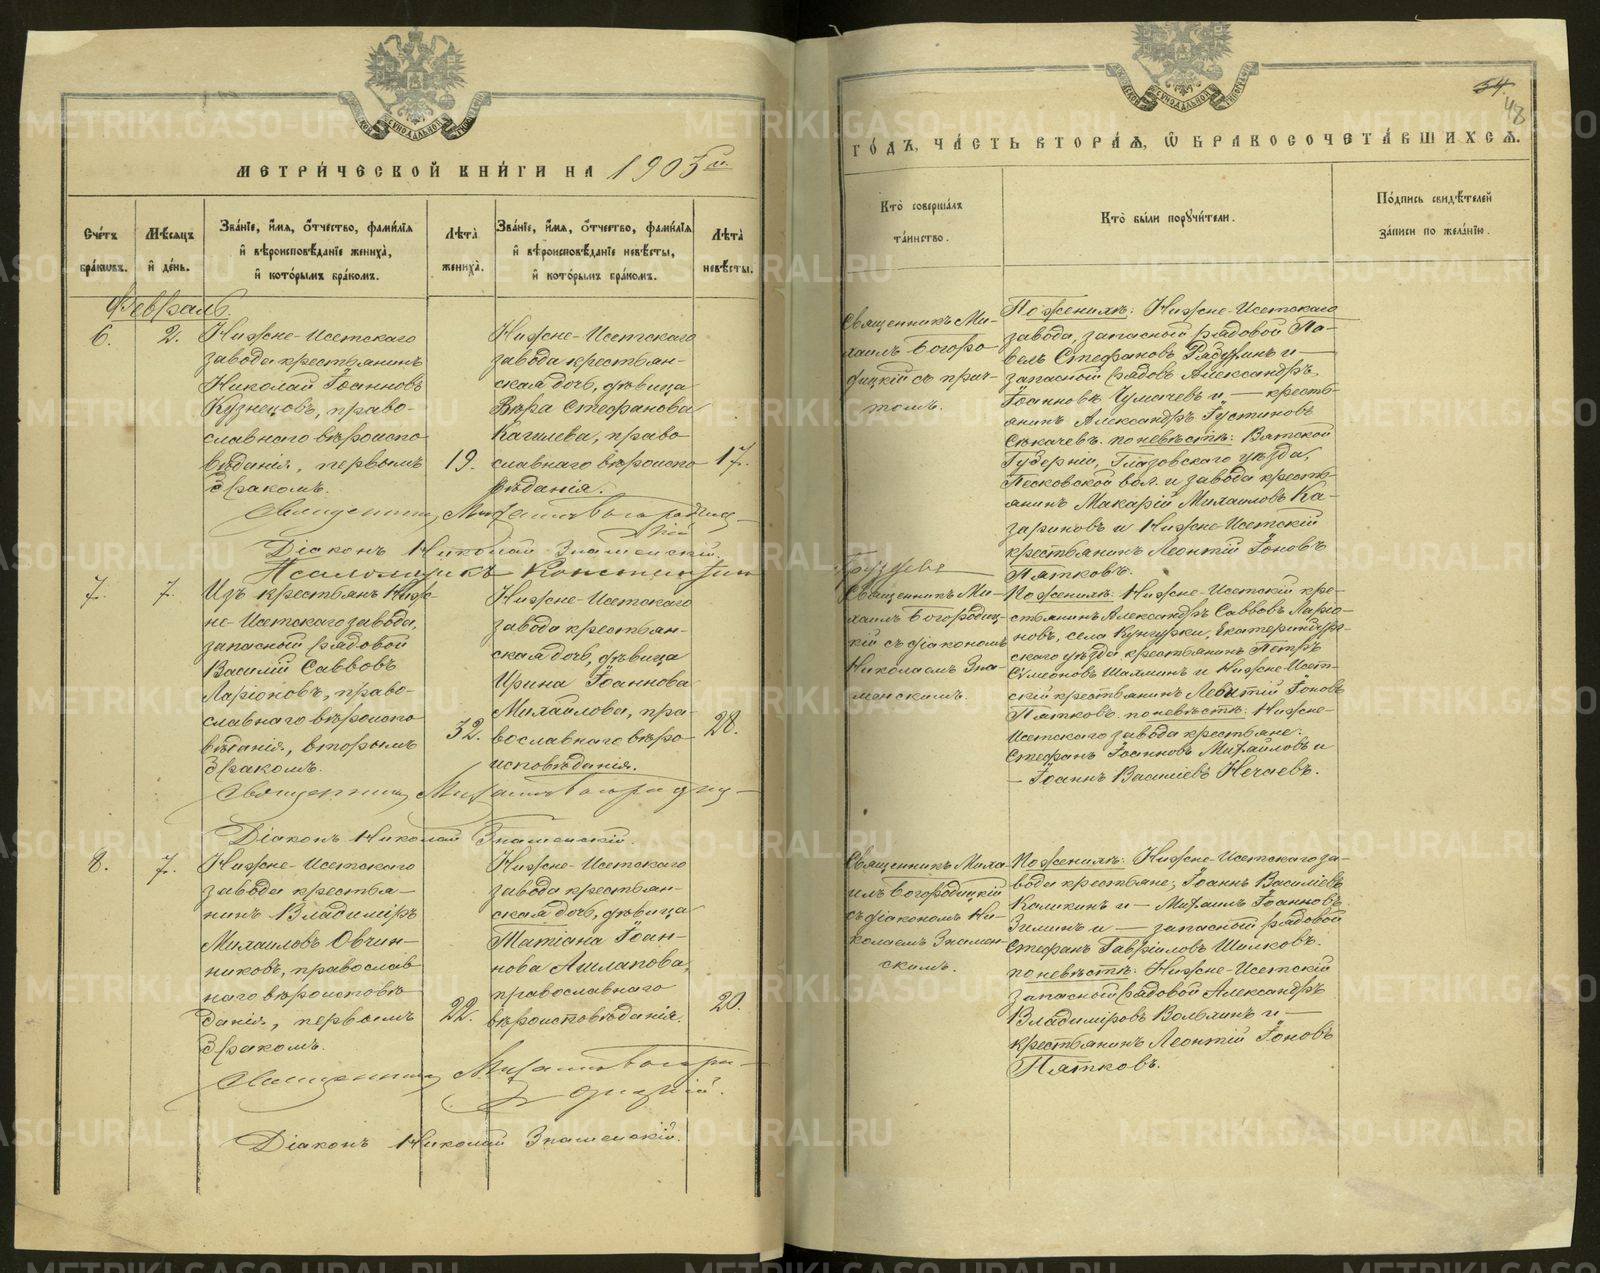 МЕТРИ́ЧЕСКОЙ КНИ́ГИ НА 1905 й.
Сче́тъ бра́кѡвъ.
Мѣ́сяцъ и҆ де́нь.
Зва́нїе, и҆́мя, ѻ҆́тчество, фами́лїя и҆ вѣроисповѣ́данїе жениха̀, и҆ кото́рымъ бра́комъ.
Лѣ́та жениха̀.
Зва́нїе, и҆́мя, ѻ҆́тчество, фами́лїя и҆ вѣроисповѣ́данїе невѣ́сты, и҆ кото́рымъ бра́комъ.
Лѣ́та невѣ́сты.
Февраль.
6.
2.
Нижне-Исетскаго
завода крестьянинъ
Николай Іоанновъ
Кузнецовъ, право-
славнаго вѣроиспо
вѣданія, первымъ
бракомъ.
19.
Нижне-Исетскаго
завода крестьян-
ская дочь, дѣвица
Вѣра Стефанова
Кагилева, право
славнаго вѣроиспо
вѣданія.
17.
Священникъ Михаилъ Богородиц-
кій
Діаконъ Николай Знаменскій.
Псаломщикъ Константинъ
7.
7.
Изъ крестьянъ Ниж-
не-Исетскаго завода,
запасной рядовой
Василій Саввовъ
Ларіоновъ, право-
славнаго вѣроиспо
вѣданія, вторымъ
бракомъ.
32.
Нижне-Исетскаго
завода крестьян-
ская дочь, дѣвица
Ирина Іоаннова
Михаилова, пра-
вославнаго вѣро
исповѣданія.
28.
Священникъ Михаилъ Богородиц-
Діаконъ Николай Знаменскій.
8.
7.
Нижне-Исетскаго
завода крестья-
нинъ Владиміръ
Михаиловъ Овчин-
никовъ, православ
наго вѣроисповѣ
данія, первымъ
бракомъ.
22.
Нижне-Исетскаго
завода крестьян-
ская дочь, дѣвица
Татіана Іоан-
нова Ашлапова,
православнаго
вѣроисповѣданія.
20.
Священникъ Михаилъ Богоро-
дицкій.
Діаконъ Николай Знаменскій.
54
48
ГО́ДЪ, ЧА́СТЬ ВТОРА́Я, Ѡ҆ БРАКОСОЧЕТА́ВШИХСЯ.
Кто̀ соверша́лъ та́инство.
Кто̀ бы́ли порꙋчи́тели.
По́дпись свидѣ́телей за́писи по жела́нїю.
Священникъ Ми-
хаилъ Богоро-
дицкій съ прич-
томъ.
По женихѣ: Нижне-Исетскаго
завода, запасной рядовой Па-
велъ Стефановъ Рядухинъ и —
запасной рядов. Александръ
Іоанновъ Чумачевъ и — кресть-
янинъ Александръ Густиновъ
Сѣкачевъ. по невѣстѣ: Вятской
Губерніи, Глазовскаго уѣзда,
Песковской вол. и завода кресть-
янинъ Макарій Михаиловъ Ка-
зариновъ и Нижне-Исетскій
крестьянинъ Леонтій Іоновъ
Пятковъ.
Священникъ Ми-
хаилъ Богородиц-
кій съ діакономъ
Николаемъ Зна-
менскимъ.
По женихѣ: Нижне-Исетскій кре-
стьянинъ Александръ Саввовъ Ларіо-
новъ, села Кунгурки, Екатеринбург-
скаго уѣзда крестьянинъ Петръ
Сѵмеоновъ Шалминъ и Нижне-Исет-
скій крестьянинъ Леонтій Іоновъ
Пятковъ. по невѣстѣ: Нижне-
Исетскаго завода крестьяне:
Стефанъ Іоанновъ Михаиловъ и
— Іоаннъ Василіевъ Нечаевъ.
Священникъ Миха-
илъ Богородицкій
съ діакономъ Ни-
колаемъ Знамен-
скимъ.
По женихѣ: Нижне-Исетскаго за-
вода крестьяне; Іоаннъ Василіевъ
Каликинъ и — Михаилъ Іоанновъ
Зиминъ и — запасной рядовой
Стефанъ Гавріиловъ Шилковъ.
по невѣстѣ: Нижне-Исетскій
запасной рядовой Александръ
Владиміровъ Волхинъ и —
крестьянинъ Леонтій Іоновъ
Пятковъ.
METRIKI.GASO-URAL.RU